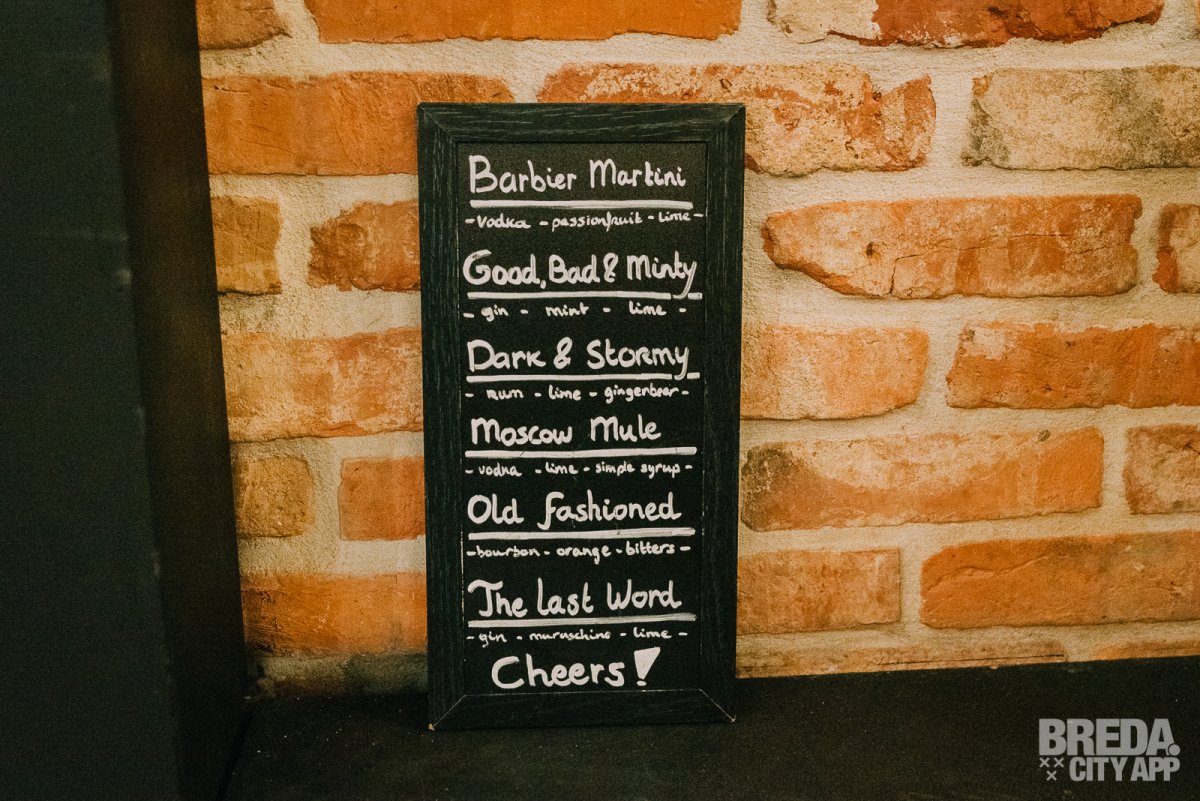 Barbier Martini
- vodka - passionfruit - lime -
Good, Bad & Minty
- gin - mint - lime -
Dark & Stormy
- rum - lime - gingerbeer -
Moscow Mule
- vodka - lime - simple syrup -
Old fashioned
- bourbon - orange - bitters -
The Last Word
- gin - maraschino - lime -
Cheers!
BREDA.
CITY APP